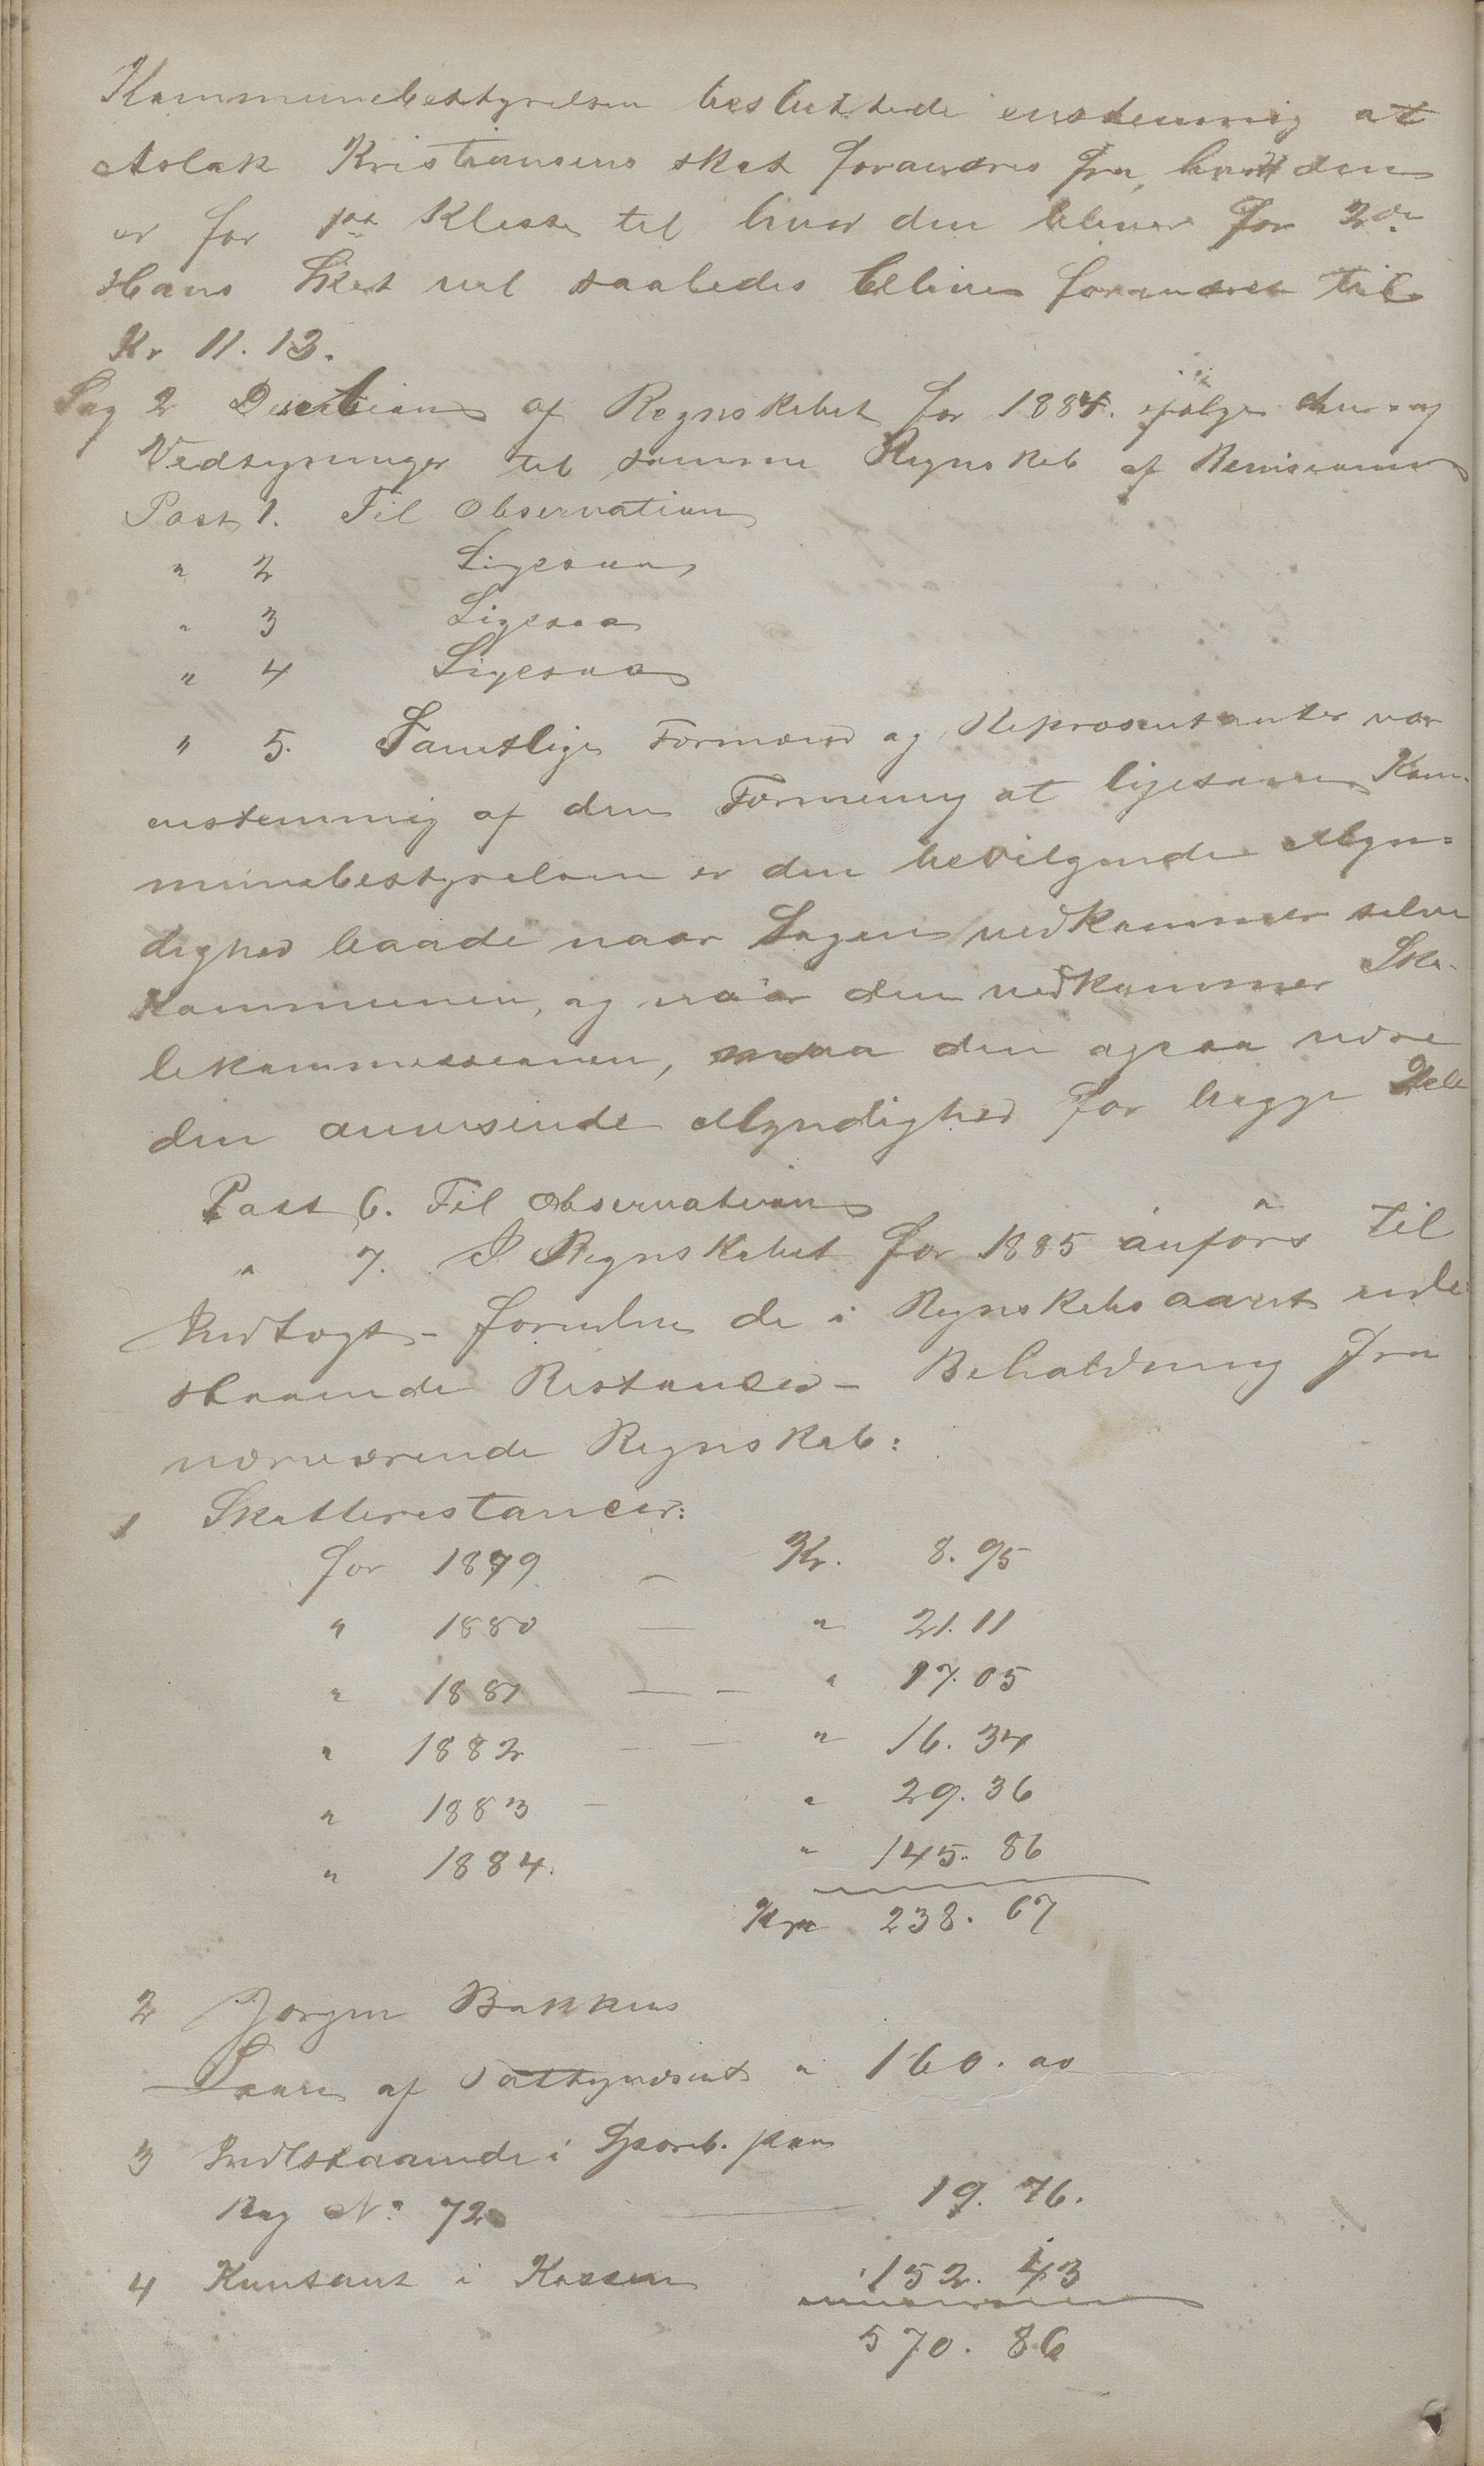 Kommunebestyrelsen besluttede enstemmig at
Aslak Kristiansens skat forandres fra, hvad den
er for 1ste Klasse til hvad den bliver for 2den
Hans Skat vil saaledes blive forandret til
Kr 11.13.
Sag 2 Decision af Regnskabet for 1884. ifølge
Vedtegninger til samme Regnskab af Revisionen
Post 1. Til Observation
" 2 Ligesaa
" 3 Ligesaa
" 4 Ligesaa
" 5. Samtlige Formænd og Repræsentanter var
enstemmig af den Formening at ligesom Kom-
munebestyrelsen er den bevilgende Myn=
dighed baade naar Sagen vedkommer selve
Kommunen, og naar den vedkommer Sko-
lekommissionen, maa den ogsaa være
den anvisende Myndighed for begge Dele
Post 6. Til Observation
" 7. I Regnskabet for 1885 anføres til
Indtægt - foruden de i Regnskabsaaret inde
staaende Restancer - Beholdning fra
nærværende Regnskab:
1 Skatterestancer:
for 1879 - Kr. 8.95
" 1880 — " 21.11
" 1881 — - " 17.05
" 1882 - - " 16.34
" 1883 - " 29.36
" 1884. " 145.86
Kr 238.67
2 Jørgen Bakkens
Laan af " 160.00
3 Indestaaende i Spareb. paa
Bog No 72 — 19.76.
4 Kontant i Kassen 152.43
570.86